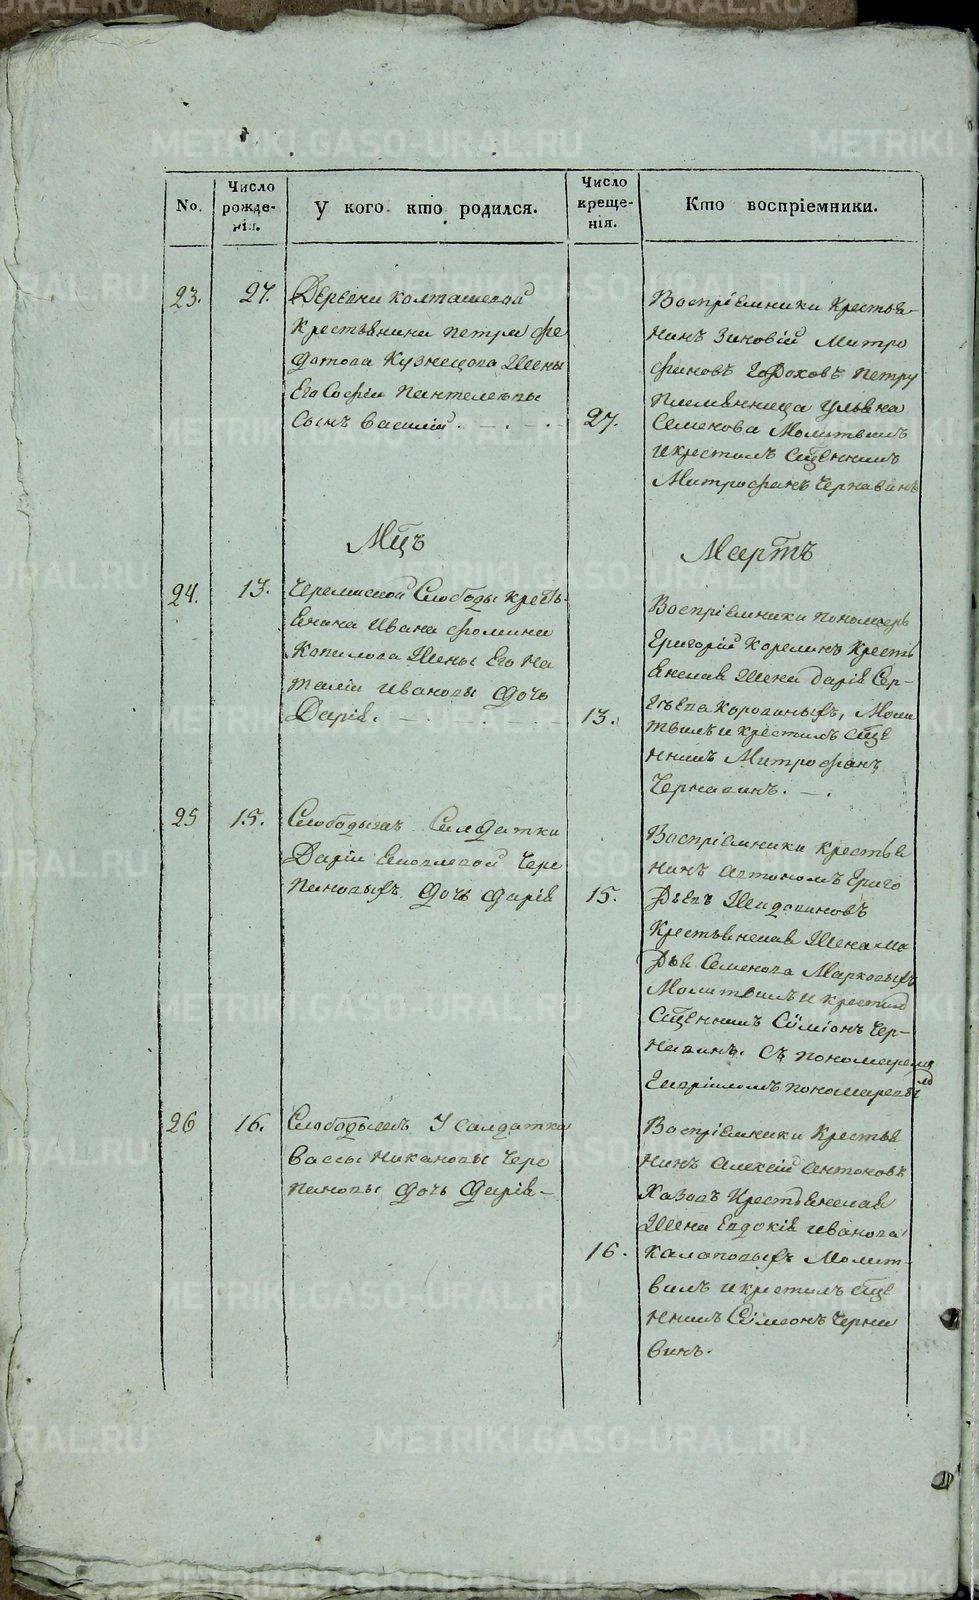 No.
Число рожде-нія.
У кого кто родился.
Число креще-нія.
Кто воспріемники.
23.
27.
Деревни Колташевой
Крестьянина Петра Фе
дотова Кузнецова Жены
Его Софіи Пантелеевы
Сынъ Василій.
27.
Воспріемники Крестья
нинъ Зиновій Митро
фановъ Гороховъ Петру
Племянница Ульяна
Семенова Молитвилъ
и крестилъ Сщенникъ
Митрофанъ Чернавинъ
Мцъ
Мартъ
24.
13.
Черемисской Слободы Кресть-
янина Ивана Фомина
Копылова Жены Его На
таліи Ивановы Дочь
Дарія.
13.
Воспріемники Пономарь
Григорій Корелинъ Кресть
янская Жена Дарія Сер-
гѣева Моли
твилъ и крестилъ Сще
нникъ Митрофанъ
Чернавинъ.
25
15.
Солдатки
Даріи Чере
пановыхъ Дочь Дарія
15.
Воспріемники Крестья
нинъ Автономъ Григо
рьевъ
Крестьянская Жена Ма
рья Семенова Марковыхъ
Молитвилъ и крестилъ
Сщенникъ Симіонъ Чер-
навинъ. Съ пономаремъ
Гавріиломъ Пономаревымъ
26
16.
У Солдатки
Вассы Никановы Чере
пановы Дочь Дарія
16.
Воспріемники Крестья
нинъ Алексій Антоновъ
Крестьянская
Жена Евдокія Иванова
Молит-
вилъ и крестилъ Сще
нникъ Симеонъ Черна
винъ.
METRIKI.GASO-URAL.RU